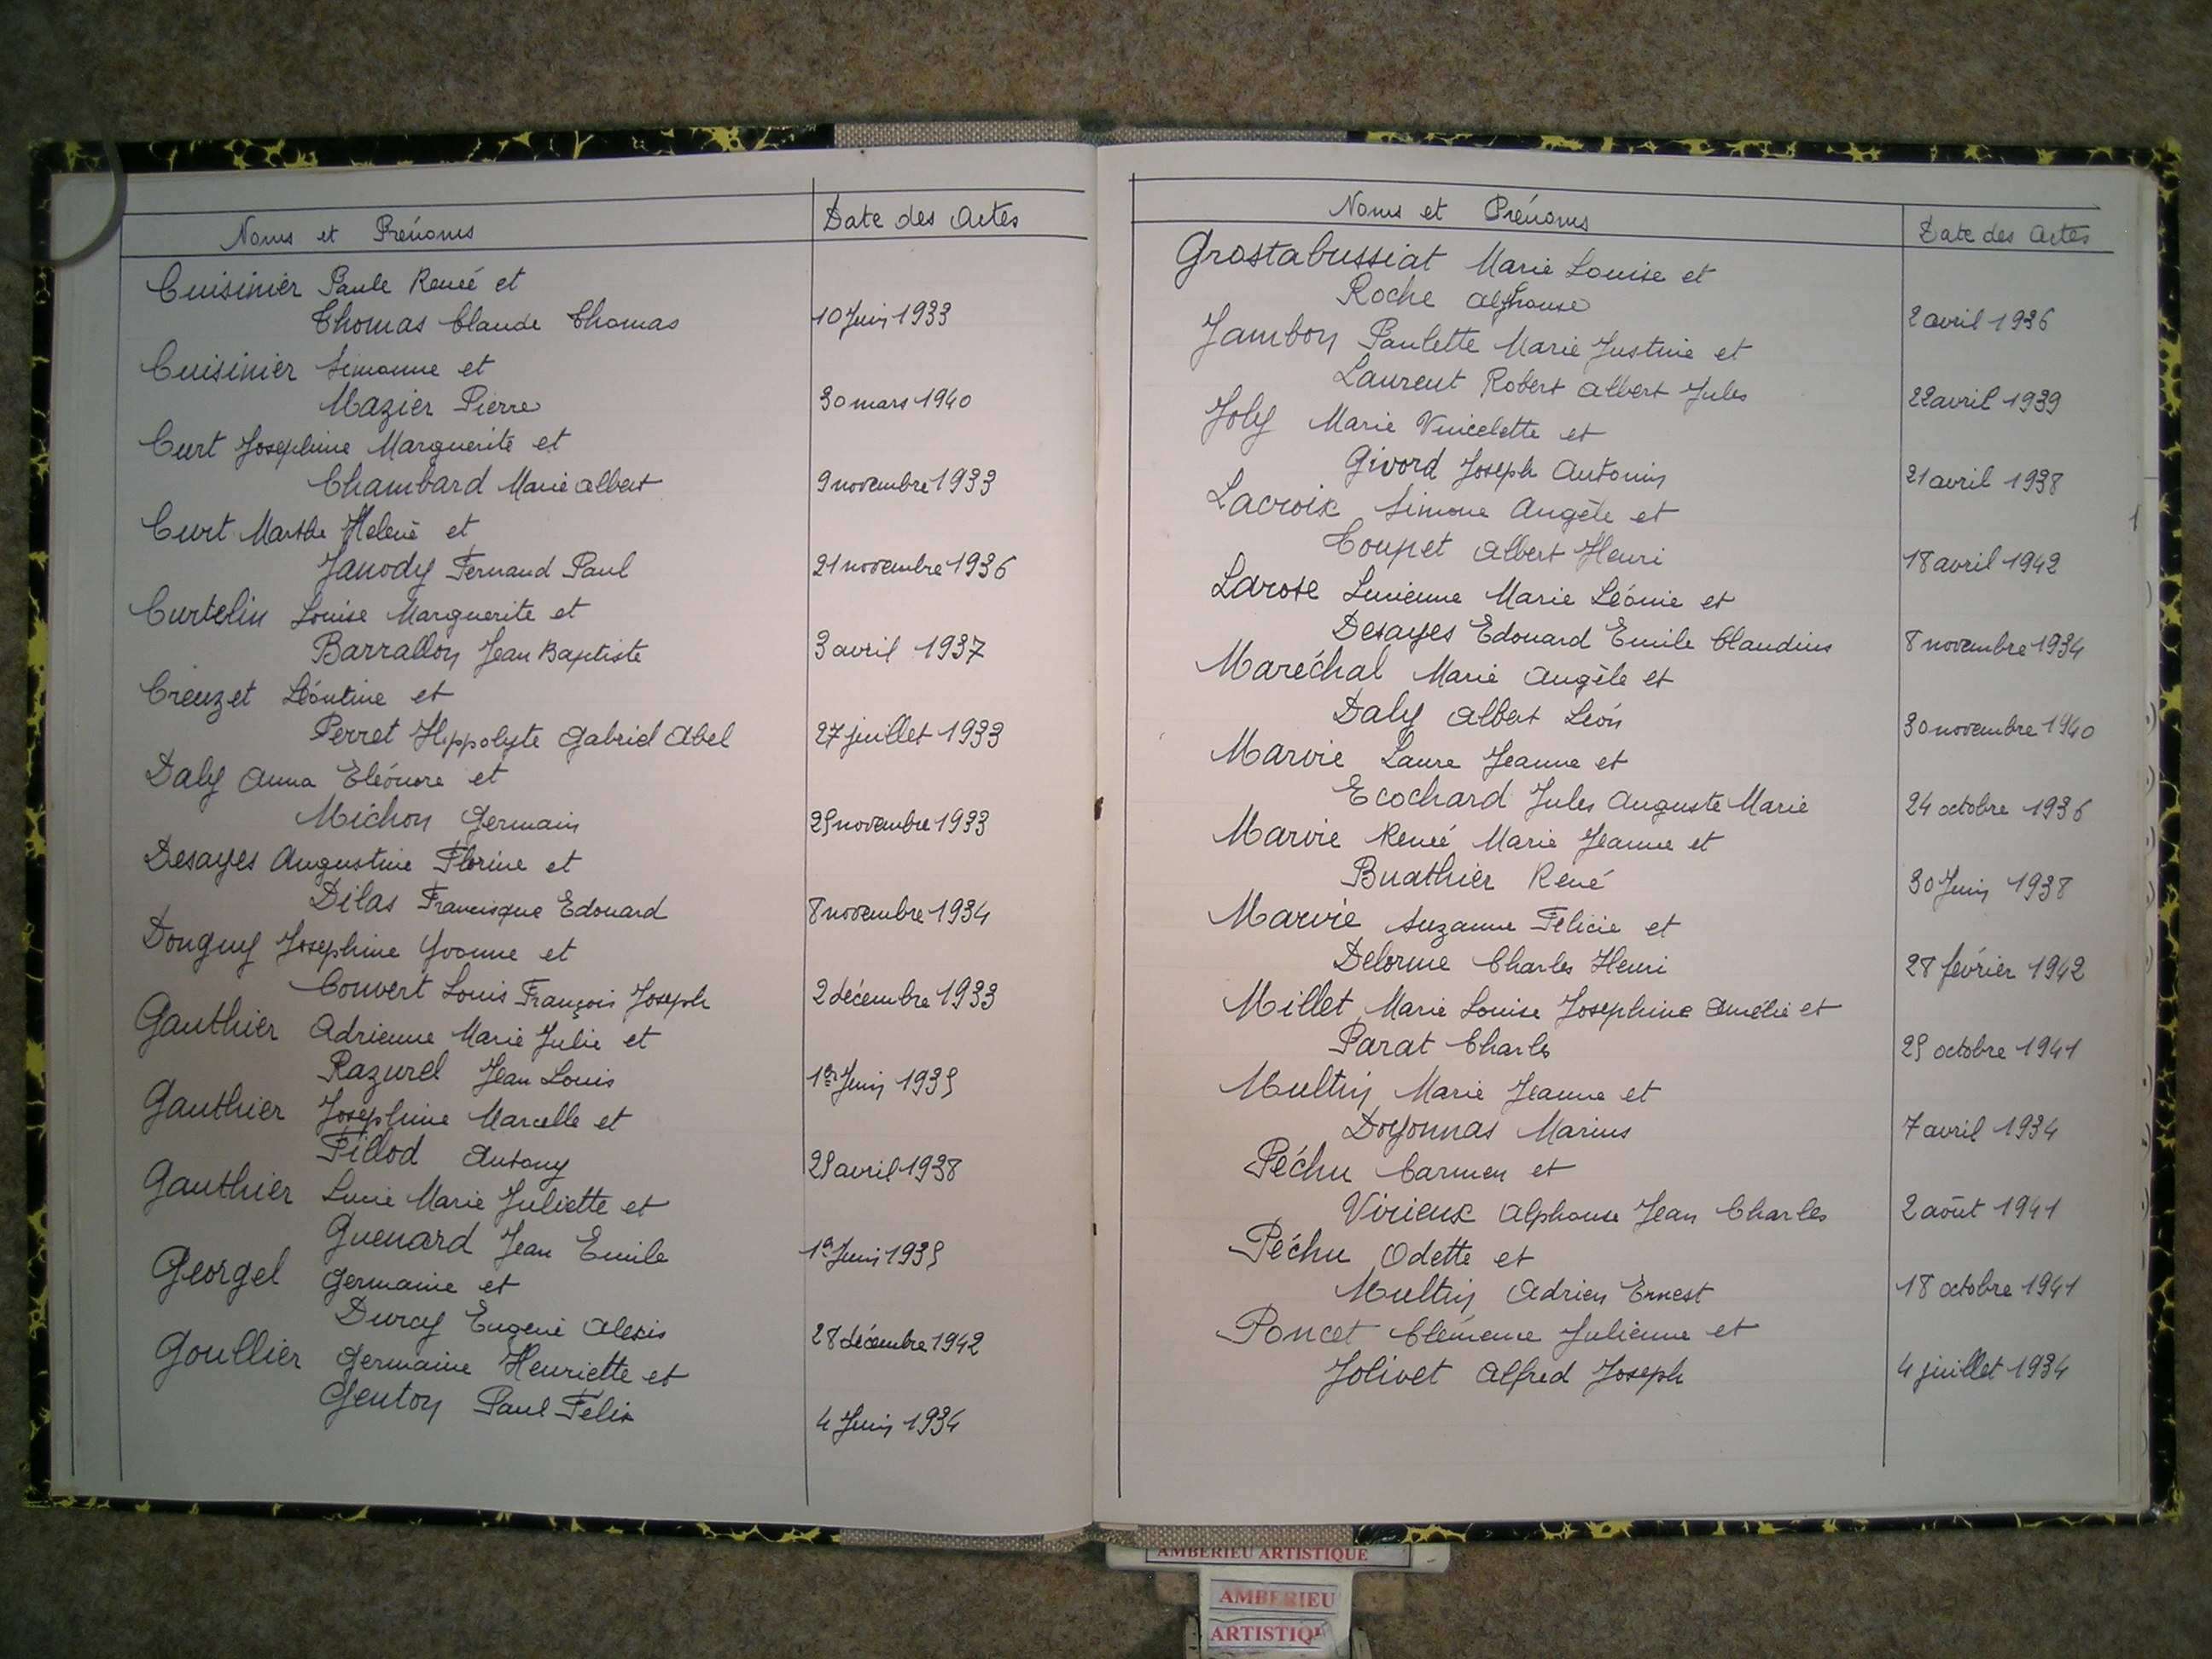 Noms et Prénoms
Date des Actes
Cuisinier Paule Renée et
Thomas Claude Thomas
10 Juin 1933
Cuisinier Simonne et
Mazier Pierre
30 mars 1940
Curt Josephine Marguerite et
Chambard Marie Albert
9 novembre 1933
Curt Marthe Helene et
Janody Fernand Paul
21 novembre 1936
Curtelin Louise Marguerite et
Barrallon Jean Baptiste
3 avril 1937
Creuzet Léontine et
Perret Hippolyte Gabriel Abel
27 juillet 1933
Daly Anna Eléonore et
Michon Germain
25 novembre 1933
Desayes Augustine Florine et
Dilas Francisque Edouard
8 novembre 1934
Donguy Josephine Yvonne et
Convert Louis François Joseph
2 décembre 1933
Gauthier Adrienne Marie Julie et
Razurel Jean Louis
1er Juin 1935
Gauthier Joséphine Marcelle et
Fillod Antony
25 avril 1938
Gauthier Lucie Marie Juliette et
Guenard Jean Emile
1er Juin 1935
Georgel Germaine et
Duray Eugene Alexis
28 décembre 1942
Goullier Germaine Henriette et
Genton Paul Félix
4 Juin 1934
Noms et Prénoms
Date des Actes
Grostabussiat Marie Louise et
Roche Alphonse
2 avril 1936
Jambon Paulette Marie Justine et
Laurent Robert Albert Jules
22 avril 1939
Joly Marie Vincelette et
Givord Joseph Antonin
21 avril 1938
Lacroix Simone Angèle et
Coupet Albert Henri
18 avril 1942
Larose Lucienne Marie Léonie et
Desayes Edouard Emile Claudius
8 novembre 1934
Maréchal Marie Angèle et
Daly Albert Léon
30 novembre 1940
Marvie Laure Jeanne et
Ecochard Jules Auguste Marie
24 octobre 1936
Marvie Renée Marie Jeanne et
Buathier René
30 Juin 1938
Marvie Suzanne Félicie et
Delorme Charles Henri
28 février 1942
Millet Marie Louise Josephine Amélie et
Parat Charles
25 octobre 1941
Multin Marie Jeanne et
Doyonnas Marius
7 avril 1934
Péchu Carmen et
Virieux Alphonse Jean Charles
2 août 1941
Péchu Odette et
Multin Adrien Ernest
18 octobre 1941
Poncet Clémence Julienne et
Jolivet Alfred Joseph
4 juillet 1934
AMBERIEU ARTISTIQUE
AMBERIEU